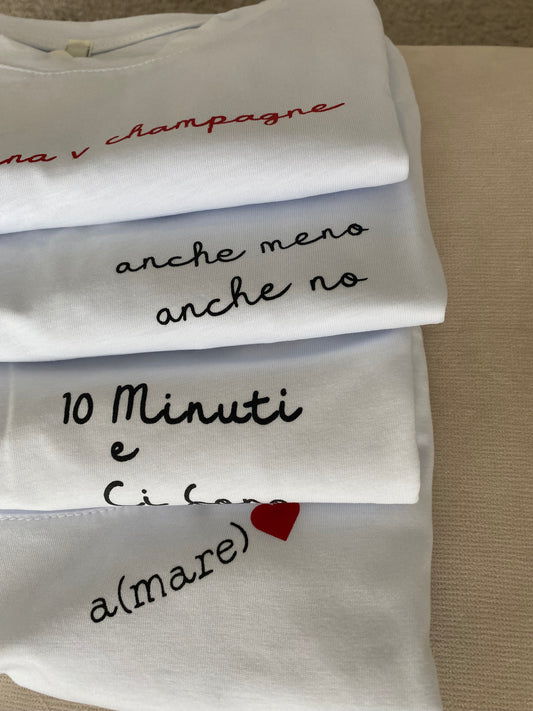 v champagne
anche meno
anche no
10 Minuti
e
Ci Sono
a(mare)